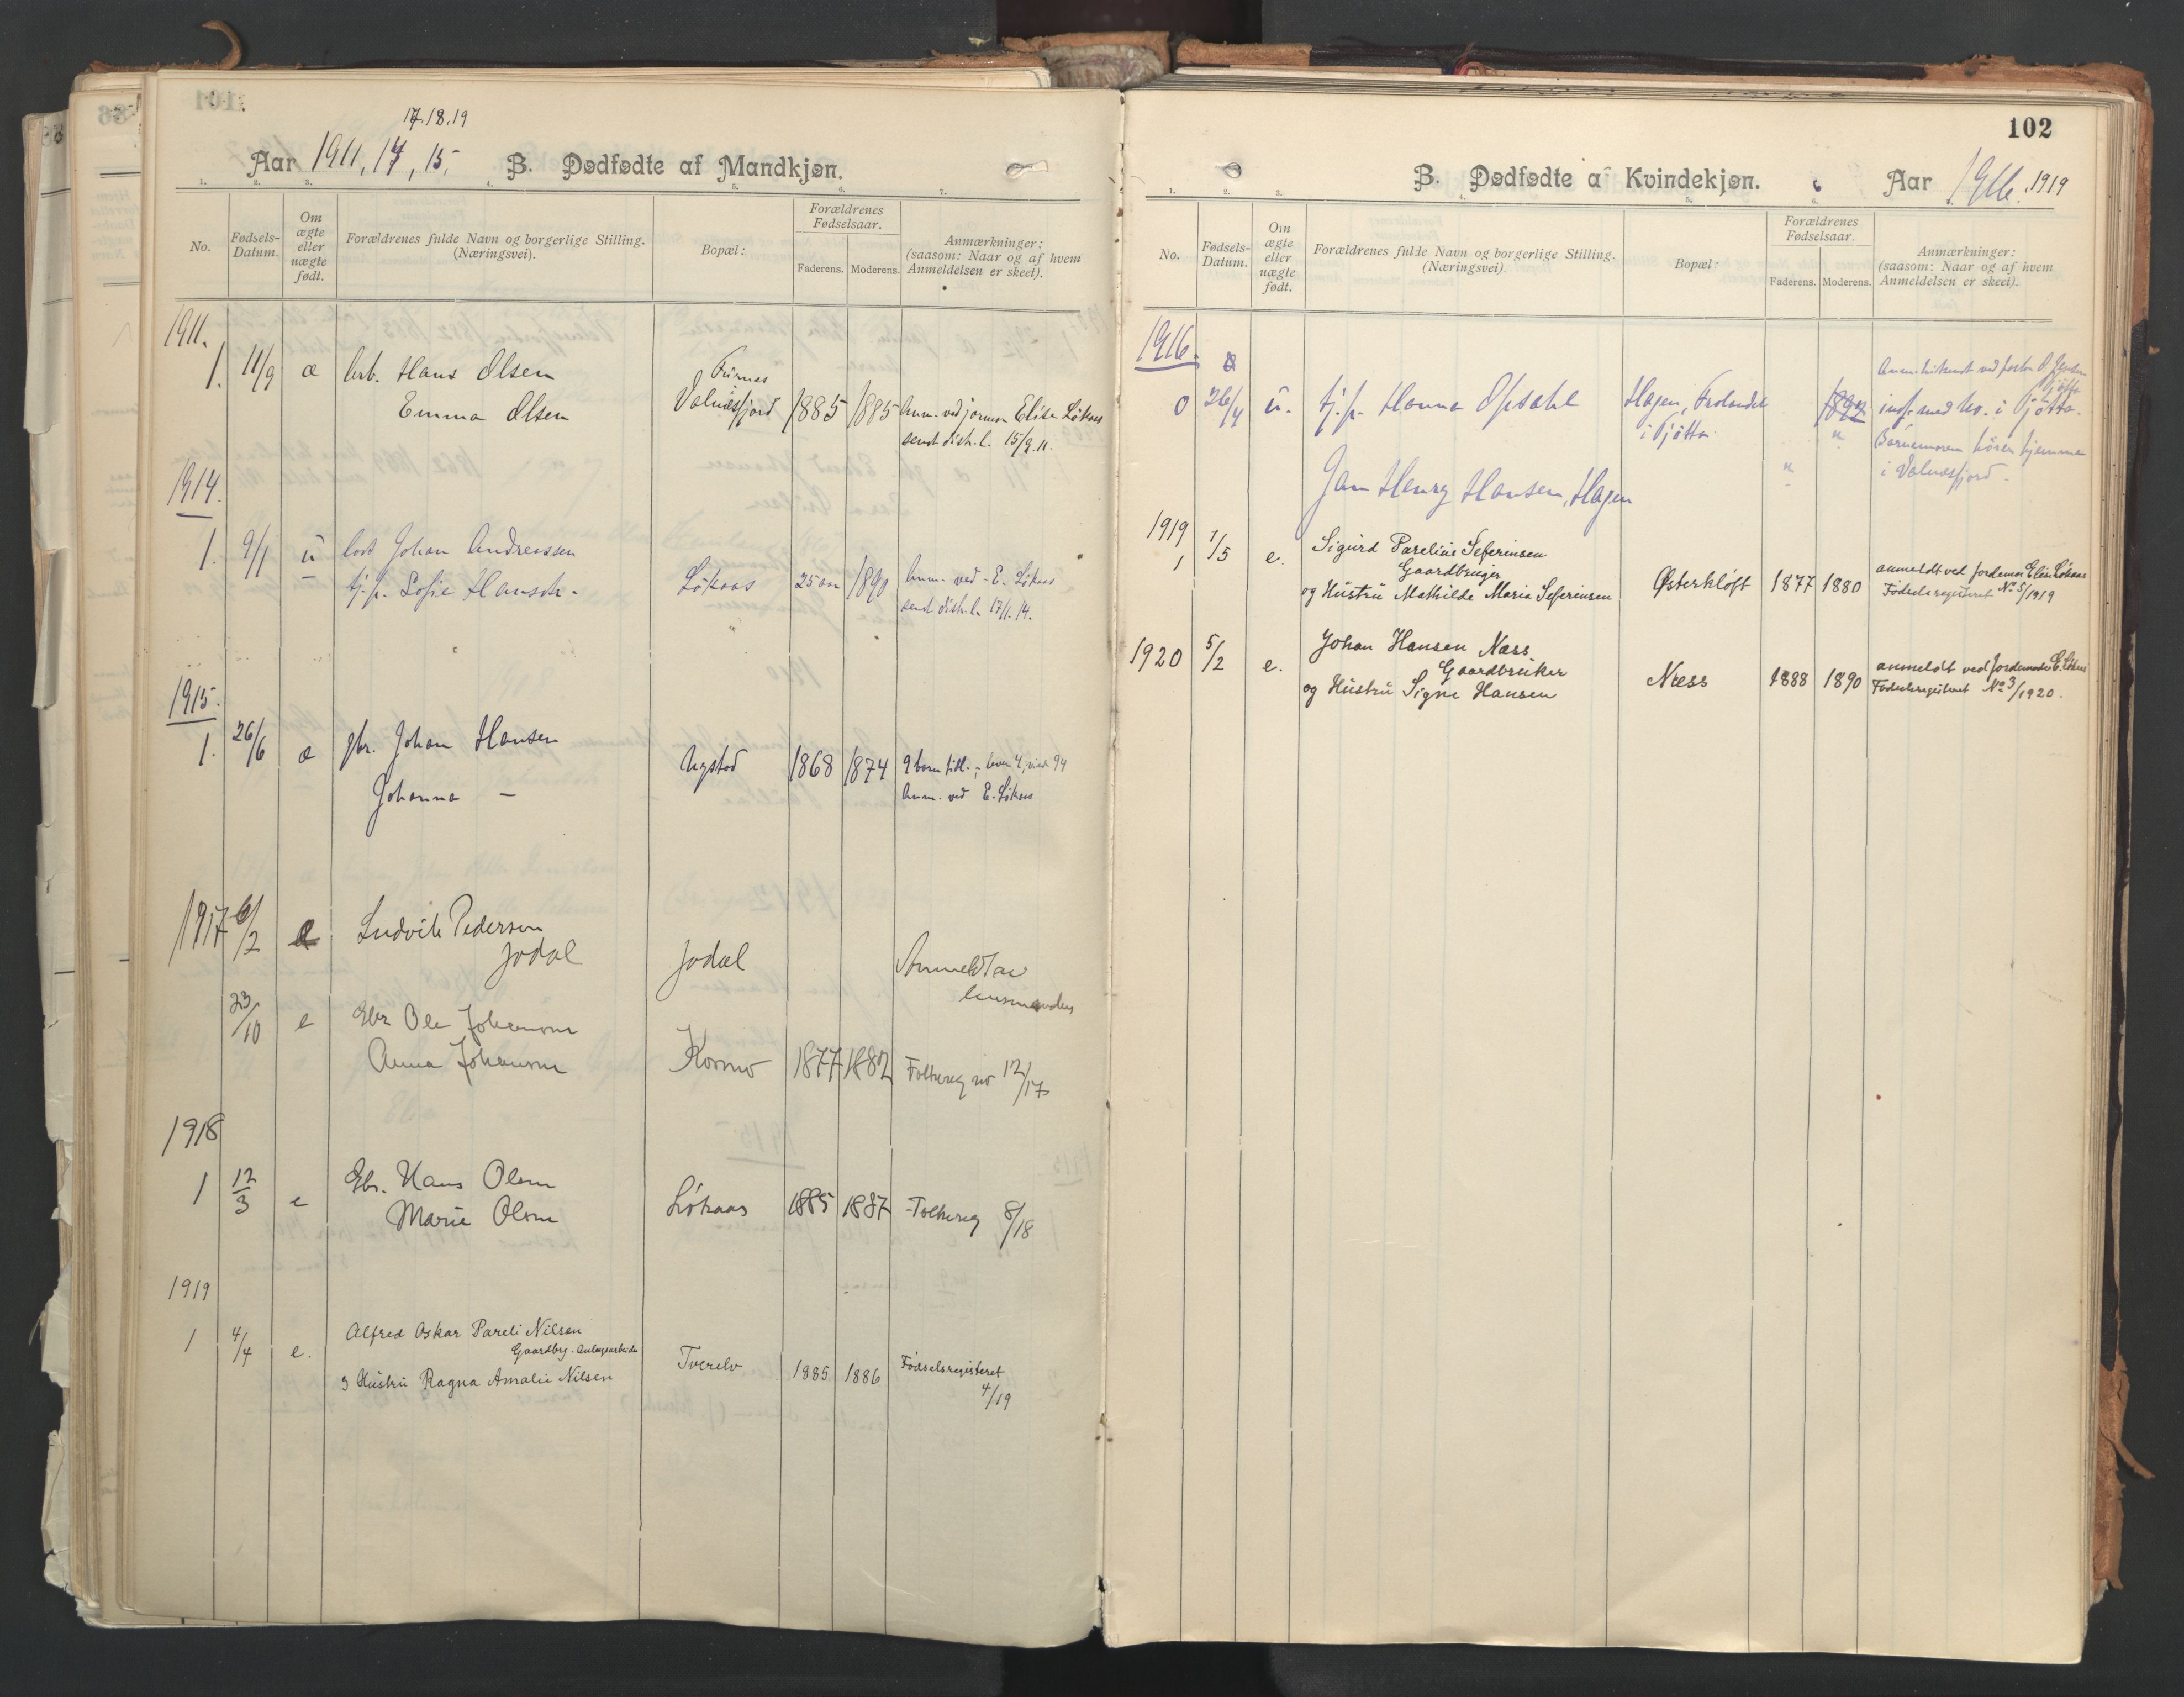 17.18.19
Aar 1911, 14, 15, B. Dødfødte af Mandkjøn.
1. 2. 3. 4. 5. 6. 7.
No.
Fødsels-
Datum.
Om
ægte
eller
uægte
født.
Forældrenes fulde Navn og borgerlige Stilling.
(Næringsvei).
Bopæl:
Forældrenes
Fødselsaar.
Faderens. Moderens.
Anmærkninger:
(saasom: Naar og af hvem
Anmeldelsen er skeet).
1911.
1. 11/9 æ Hans Olsen
Emma Olsen
Furnes
Valnesfjord 1885 1885 Anm. ved jormor Elise Løkaas
sendt dist.l. 15/9 11.
1914.
1. 9/1 u Johan Andreassen
tj.p. Sofie Hansdr. Løkaas 25 aar 1890 Anm. ved E. Løkaas
sendt dist.l. 17/1. 14.
1915.
1. 26/6 æ gbr. Johan Hansen
Johanna — Nystad 1868 1874 9 barn tidl.
Anm. ved E. Løkaas
1917 6/2 e Ludvik Pedersen
Jodal Jodal Anmeldt av
lensmanden
23/10 e Gbr Ole Johansen
Anna Johansen Kosmo 1877 1882 Folkereg no 12/17
1918
1 12/3 e Gbr. Hans Olsen
Marie Olsen Løkaas 1885 1887 Folkereg 8/18
1919
1 4/4 e. Alfred Oskar Pareli Nilsen
Gaardbr. Anlægsarbeider
Hustru Ragna Amalie Nilsen Tverelv 1885 1886 Fødselsregisteret
4/19
102
B. Dødfødte af Kvindekjøn. Aar 1916. 1919
1. 2. 3. 4. 5. 6.
No.
Fødsels-
Datum.
Om
ægte
eller
uægte
født.
Forældrenes fulde Navn og borgerlige Stilling.
(Næringsvei).
Bopæl:
Forældrenes
Fødselsaar.
Faderens. Moderens.
Anmærkninger:
(saasom: Naar og af hvem
Anmeldelsen er skeet).
1916.
0 26/4 u. tj.p. Hanna Opsahl Hagen,
i Tjøtta 1892 i Tjøtta.
Barnemoren hører hjemme
i Valnesfjord.
Jam Henry Hansen, Hagen
1919
1 1/5 e. Sigurd Parelius Seferinsen
Gaardbruger
og Hustru Mathilde Maria Seferinsen Østerkløft 1877 1880 anmeldt ved Jordemor Elise Løkaas
Fødselsregisteret No 5/1919
1920 5/2 e. Johan Hansen Næss
Gaardbruker
og Hustru Signe Hansen Næss 1888 1890 anmeldt ved Jordemoder E. Løkaas
Fødselsregisteret No 3/1920.